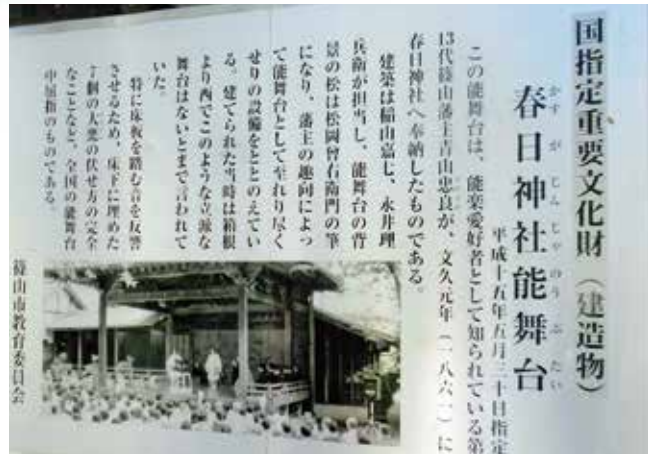 国指定重要文化財（建造物）
かすがじんじゃのうぶたい
春日神社能舞台
平成十五年五月三十日指定
この能舞台は、能楽愛好者として知られている第
13代篠山藩主青山忠良が、文久元年（一八六一）に
春日神社へ奉納したものである。
建築は稲山嘉七、永井理
兵衛が担当し、能舞台の背
景の松は松岡曾右衛門の筆
になり、藩主の趣向によっ
て能舞台として至れり尽く
せりの設備をととのえてい
る。建てられた当時は箱根
より西でこのような立派な
舞台はないとまで言われて
いた。
特に床板を踏む音を反響
させるため、床下に埋めた
7個の大甕の伏せ方の完全
なことなど、全国の能舞台
中屈指のものである。
篠山市教育委員会